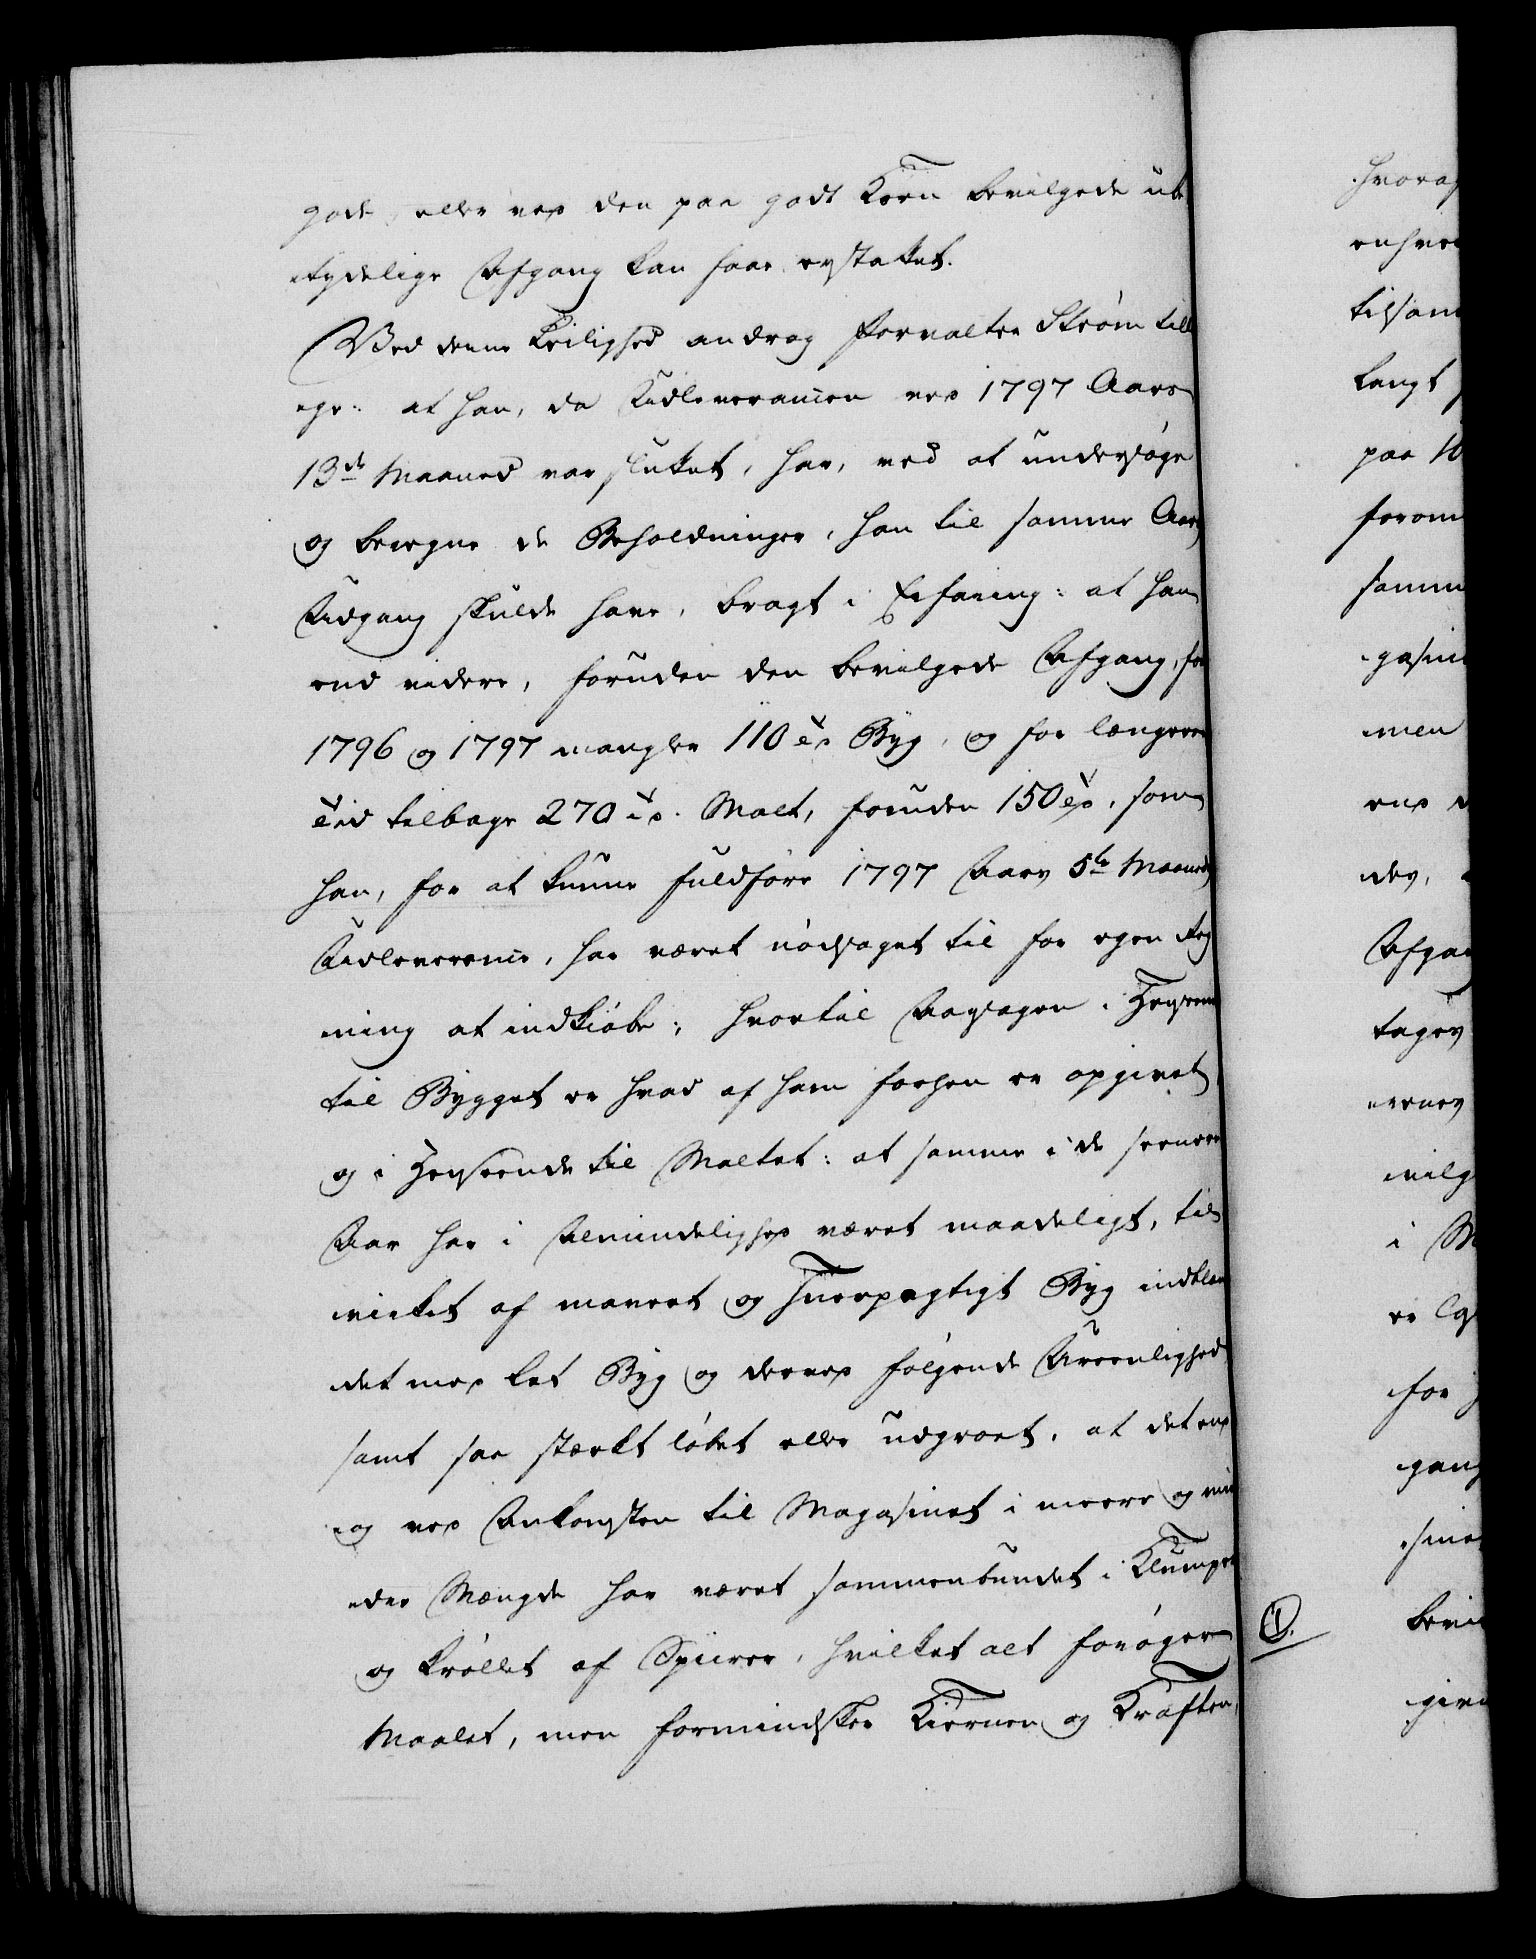 gode, eller ved den paa godt Korn bevilgede ube
tydelige Afgang kan faae erstattet.
Ved denne Leilighed androg Forvalter Strøm till
ige: at han, da Udleverancen ved 1797 Aars
13de Maaned var sluttet, har, ved at undersøge
og beregne de Beholdninger, han til samme Aars
Udgang skulde have, bragt i Erfaring: at han
end videre, foruden den bevilgede Afgang, for
1796 og 1797 mangler 110 Byg, og for længere
Tid tilbage 270 Malt, foruden 150, som
han, for at kunne fuldføre 1797 Aars 5te Maaneds
Udleverance, har været nødsaget til for egen Reg
ning at indkiøbe; hvortil Aarsagen i Henseende
til Bygget er hvad af ham forhen er opgivet,
og i Henseende til Maltet: at samme i de seenere
Aar har i Almindelighed været maadeligt, til
virket af mavert og Fnerpagtigt Byg indblan
det med let Byg og derved følgende Ureenlighed
samt saa stærkt løbet eller udgroet, at det end
og ved Ankomsten til Magasinet i meere og min
dre Mængde har været sammenbundet i Klumper
og krøllet af Spiirer, hvilket alt forøger
Maalet, men formindsker Kiernen og Kraften,
hvoraf
enhver
tilsam
langt
paa 10
forom
samm
gasin
men
end
der,
Afgang
tages
ernes
vilg
i M
er
for
gang
sine
bevil
give